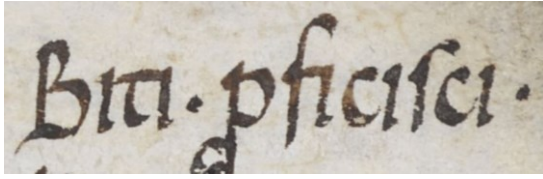 Biti. ꝓficiſci.